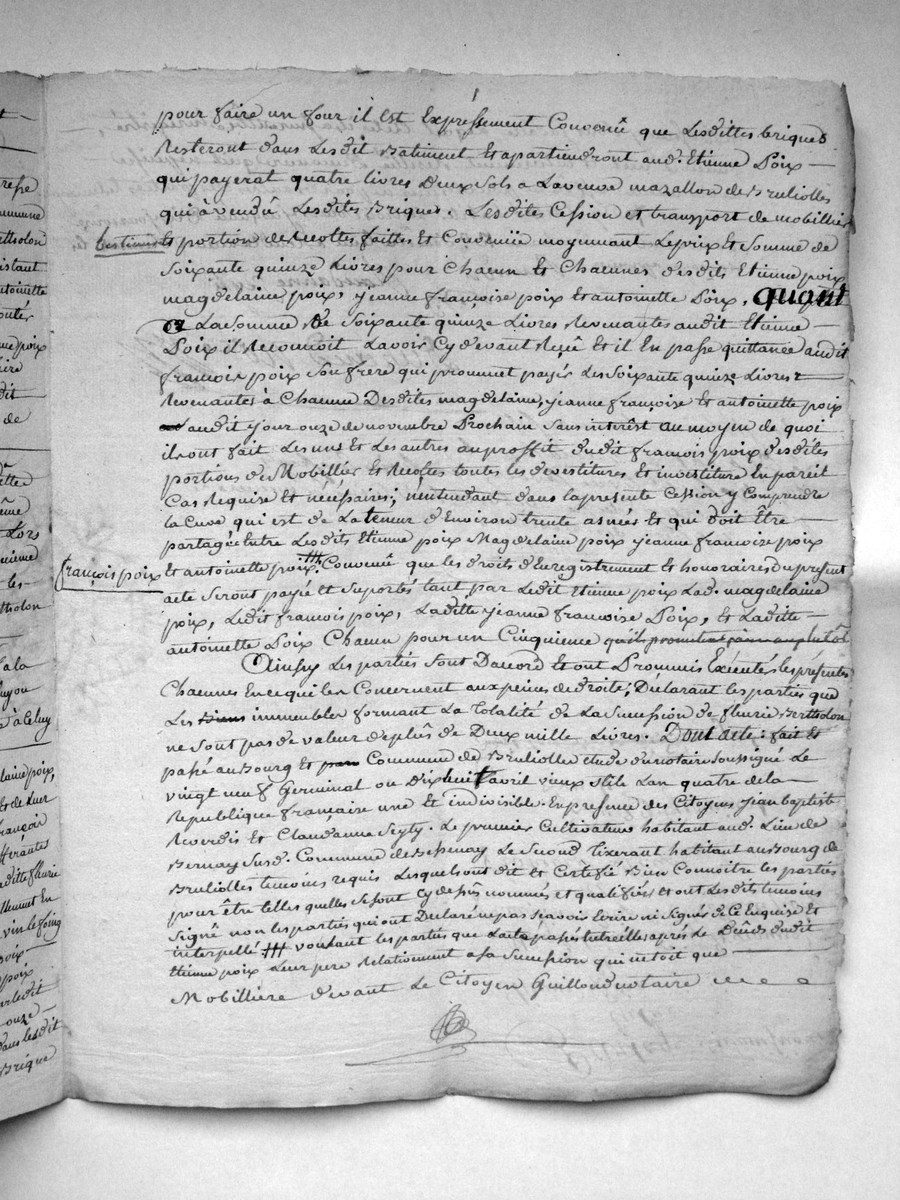 pour faire un four il est Expressement Convenû que Lesdittes briques
Resteront dans Lesdit Batiment et apartiendront aud. Etienne Poix
qui payerat quatre livres Deux Sols a Laveuve mazallon de Brullioles
qui à vendû Lesdites Briques. Lesdites Cession et transport de mobillier
et portion de Recoltes faittes et Convenüe moyennant Leprix et Somme de
Soixante quinze Livres pour Chacun et Chacunes desdits Etienne poix
magdelaine poix, jeanne françoise poix et antoinette Poix, quant
a La Somme De Soixante quinze Livres Revenantes audit Etienne
Poix il Reconnoit Lavoir Cydevant Reçû et il En passe quittance audit
françois poix Son frere qui prommet payér Les Soixante quinze Livres
Revenantes a Chacune Desdites magdelaine, jeanne françoise et antoinette poix
audit jour onze de novembre Prochain Sans interest au moyen de quoi
ils ont fait Les uns et Les autres auproffit dudit françois poix desdites
portions de Mobillier et Recoltes toutes les devestitures et investiture En pareil
Cas Requise et nécéssaires; n'entendant dans la presente Cession y Comprendre
la Cuve qui est de La teneur d'Environ trente asnées et qui doit Être
partagée Entre Lesdits Etienne poix Magdelaine poix jeanne françoise poix
françois poix
et antoinette poix Convenû que les droits d'Enregistrement et honoraires du present
acte Seront payée et Suportés tant par Ledit Etienne poix Lad. magdelaine
poix, Ledit françois poix, Laditte jeanne françoise Poix, et Laditte
antoinette Poix Chacun pour un Cinquieme
Ainsy Les parties Sont Dacord et ont Prommis Exécutér les presentes
Chacunes En ce qui les Concernent aux peines de droits; Déclarant les parties que
Les Biens immeubler formant La Totalité de La Succession de fleurie Bertholon
ne Sont pas de valeur de plûs de Deux mille Livres. Dont acte: fait et
passé au Bourg et Commune de Brulioles etude du notaire Soussigné Le
vingt neuf Germinal ou dixhuit avril vieux Stile Lan quatre dela
Republique française une et indivisible. En presence des Citoyens jean baptiste
Reverdis et Claude anne Seyty. Le premier Cultivateur habitant aud. Lieu de
Bernay Susd. Commune de Bessenay Le Second Tixerant habitant au Bourg de
Brulioles temoins requis Lesquels ont dit et Certifié Bien Connoitre les parties
pour être telles quelles Se Sont Cy dessus nommées et qualifiées et ont Lesdits temoins
Signé non les parties qui ont Declaré ne pas Scavoir Ecrire ni Signér de Ce Enquise et
interpellé voulant les parties que après Le Décès dudit
Etienne poix Leur pere Relativement a Sa Succession qui n'etoit que
Mobilliere devant Le Citoyen Guillond notaire